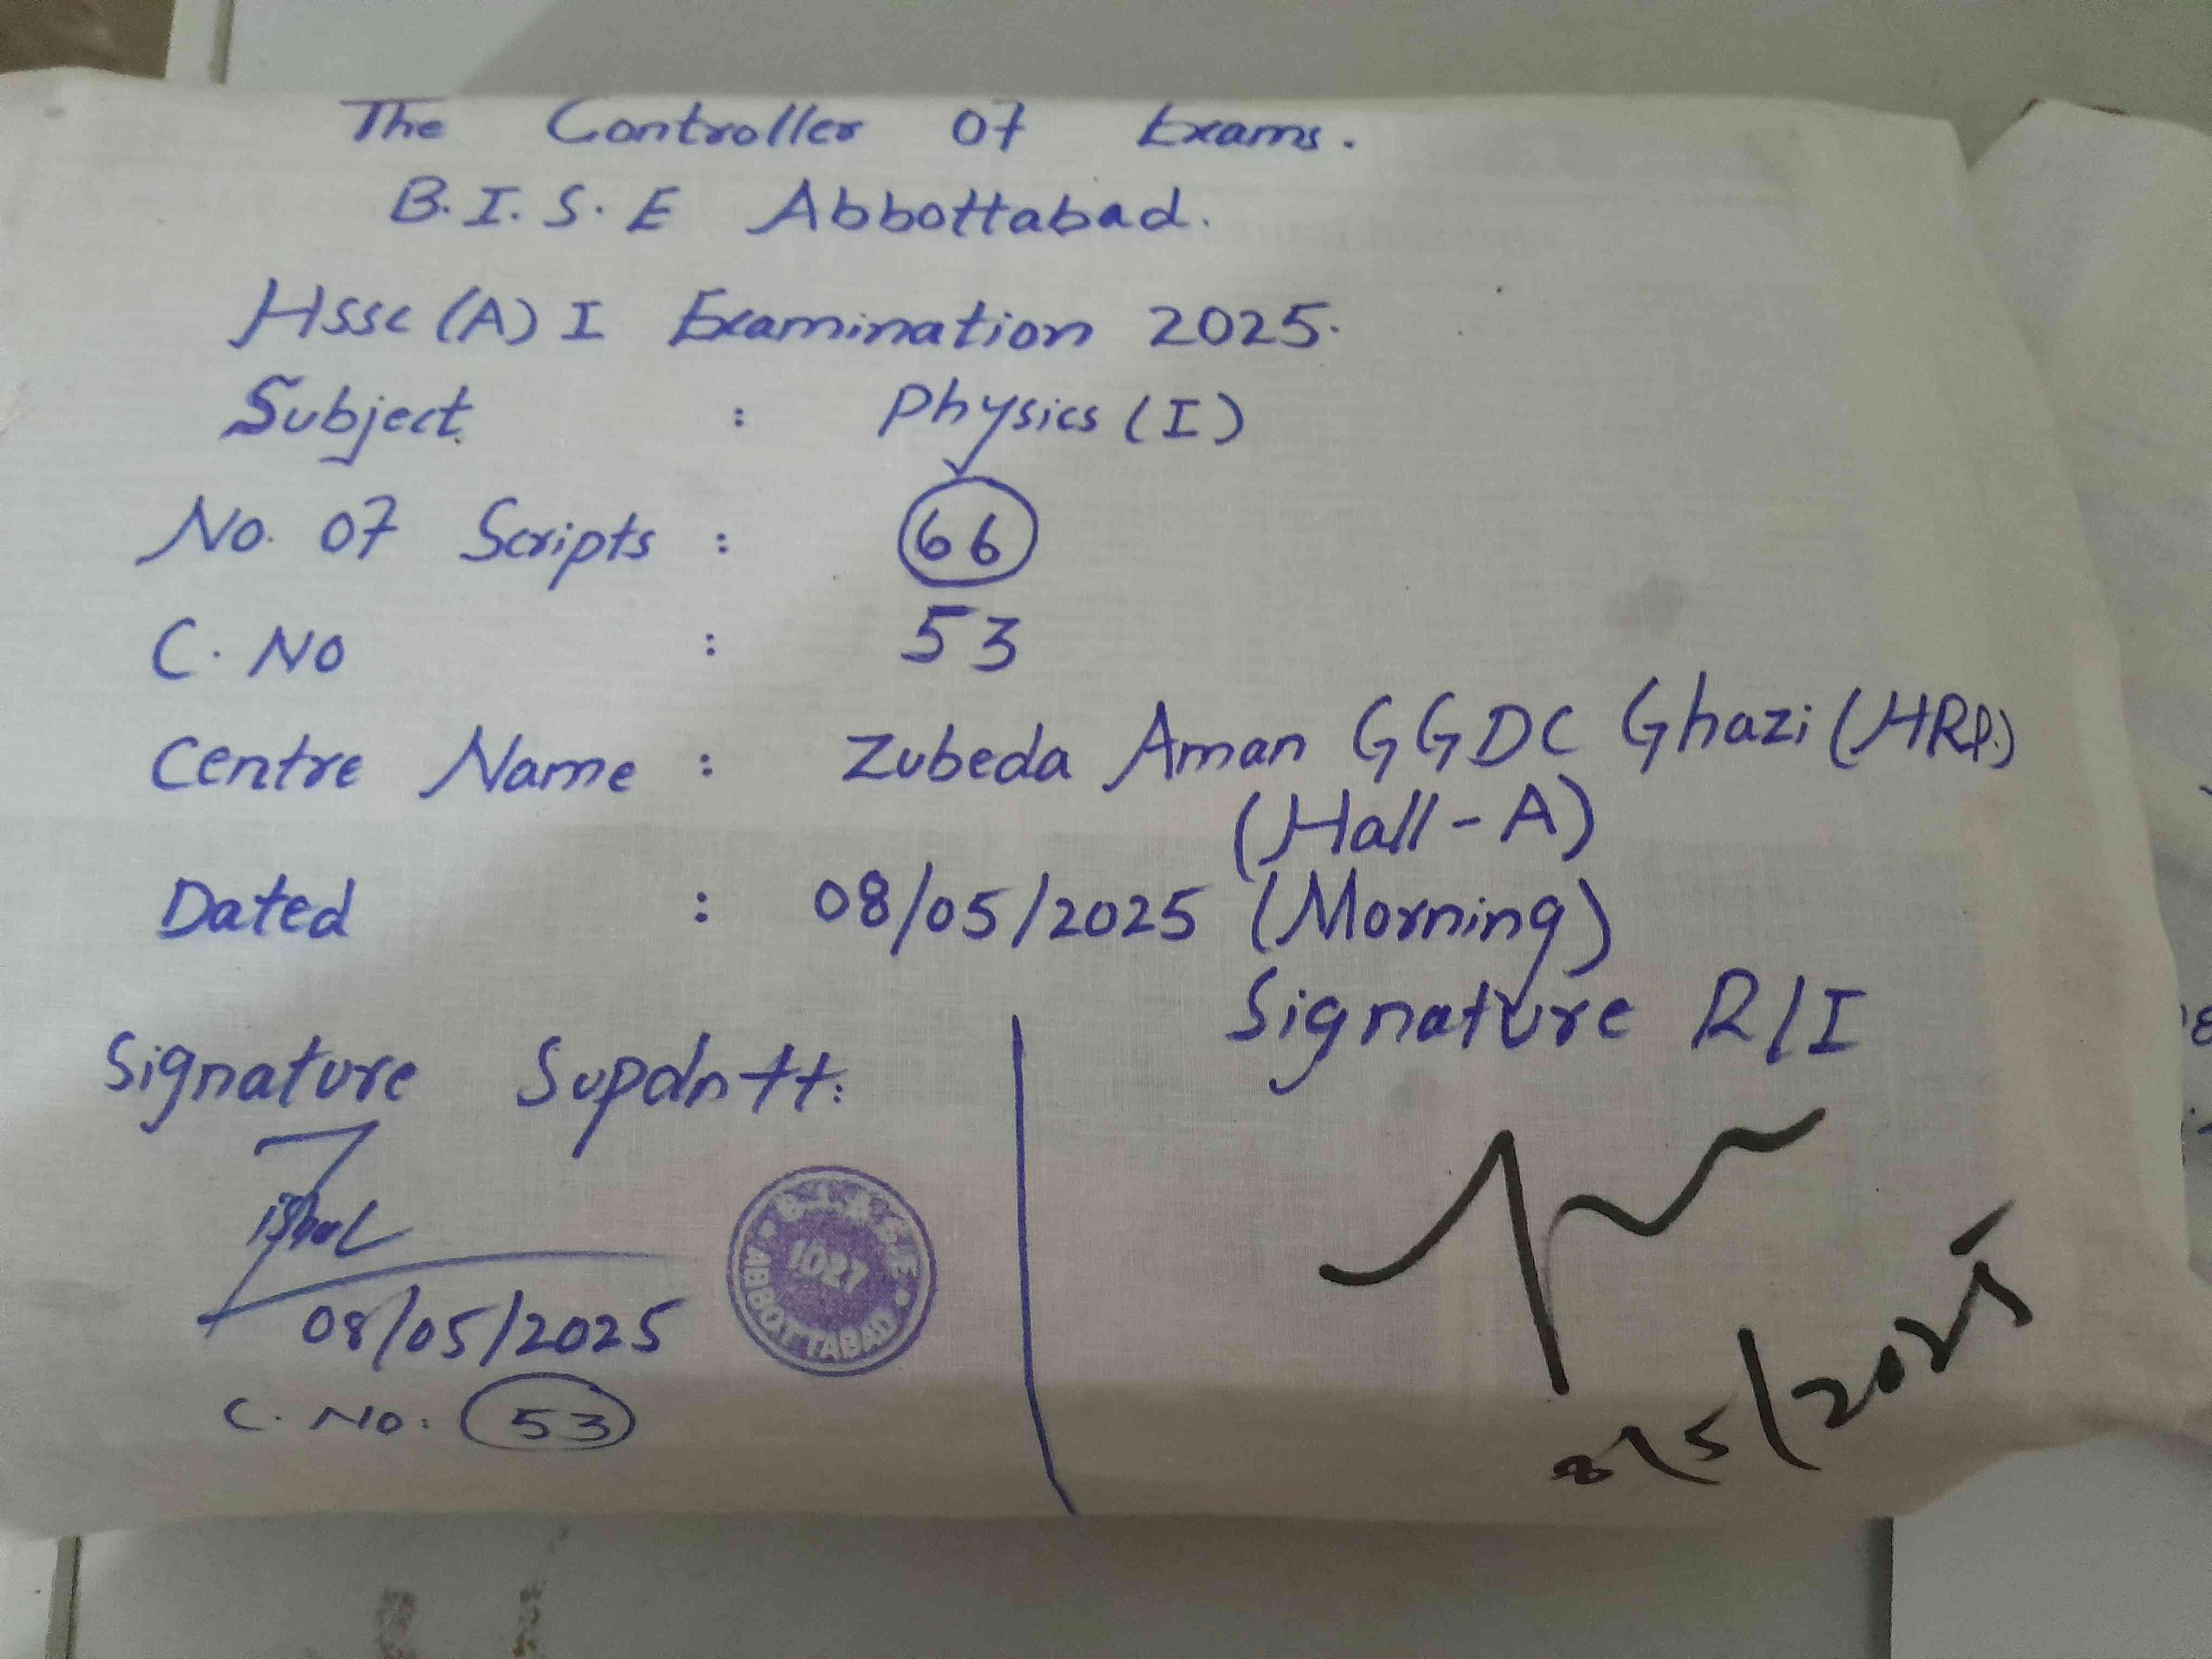 The Controller Of Exams.
B.I.S.E Abbottabad.
HSSC (A) I Examination 2025.
Subject : Physics (I)
No. Of Scripts : 66
C. No : 53
Centre Name : Zubeda Aman GGDC Ghazi (HRP.)
(Hall-A)
Dated : 08/05/2025 (Morning)
Signature Supdntt:
iqbal
08/05/2025
C. No: 53
B.I.&S.E
1027
ABBOTTABAD
Signature R/I
8/5/2025